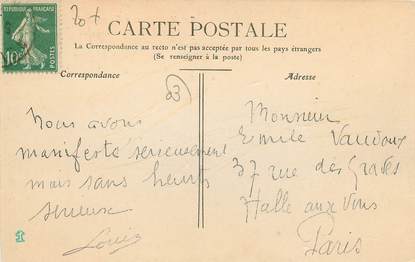 REPUBLIQUE FRANÇAISE
10c
POSTES
CARTE POSTALE
La Correspondance au recto n'est pas acceptée par tous les pays étrangers
(Se renseigner à la poste)
Correspondance
Adresse
23
Nous avons
manifesté sérieusement
mais sans heurts
sérieux
Louis
Monsieur
Emile Vaudoux
37 rue des Graves
Halle aux Vins
Paris